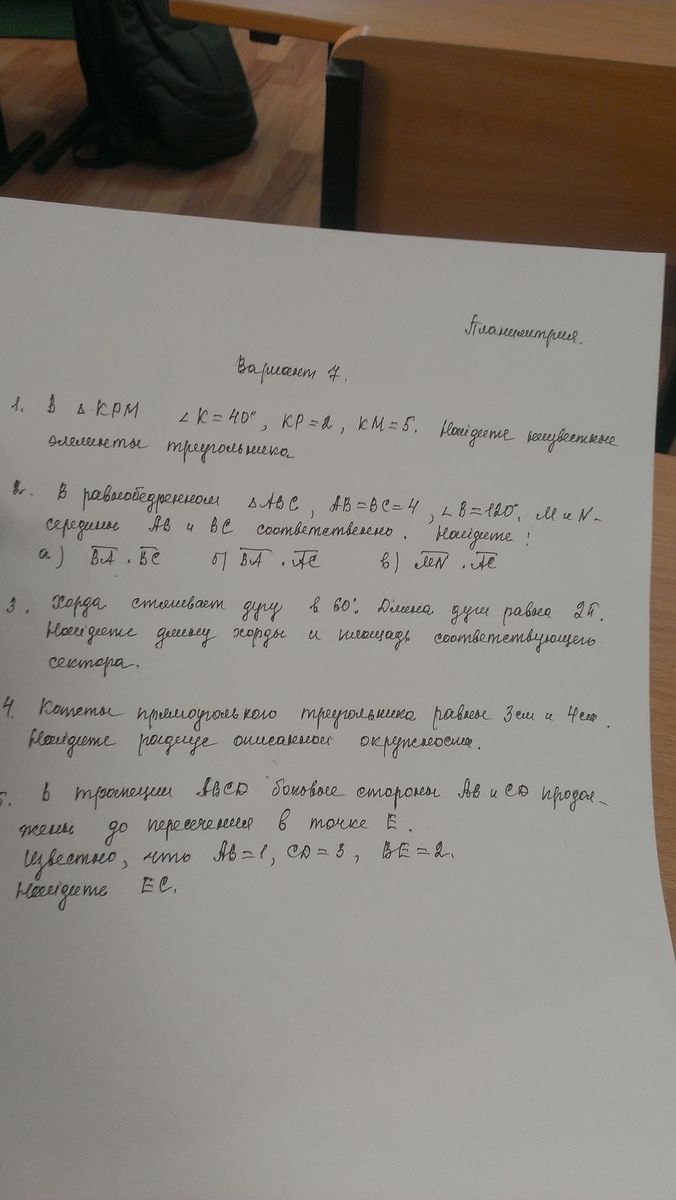 Планиметрия.
Вариант 7.
1. В △KPM ∠K=40°, KP=2, KM=5. Найдите неизвестные
элементы треугольника
2. В равнобедренном △ABC, AB=BC=4, ∠B=120°. M и N-
середины AB и BC соответственно. Найдите:
а) BA · BC б) BA · AC в) MN · AC
3. Хорда стягивает дугу в 60°. Длина дуги равна 2π.
Найдите длину хорды и площадь соответствующего
сектора.
4. Катеты прямоугольного треугольника равны 3см и 4см.
Найдите радиус описанной окружности.
5. В трапеции ABCD боковые стороны AB и CD продол-
жены до пересечения в точке E.
Известно, что AB=1, CD=3, BE=2.
Найдите EC.